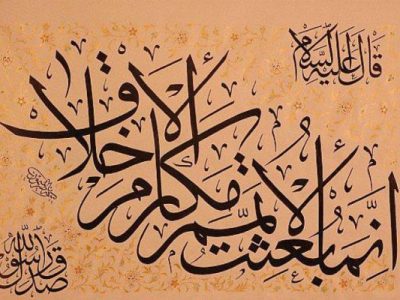 قال عليه السلام
إنما بعثت لاتمم مكارم الاخلاق
صدق رسول الله